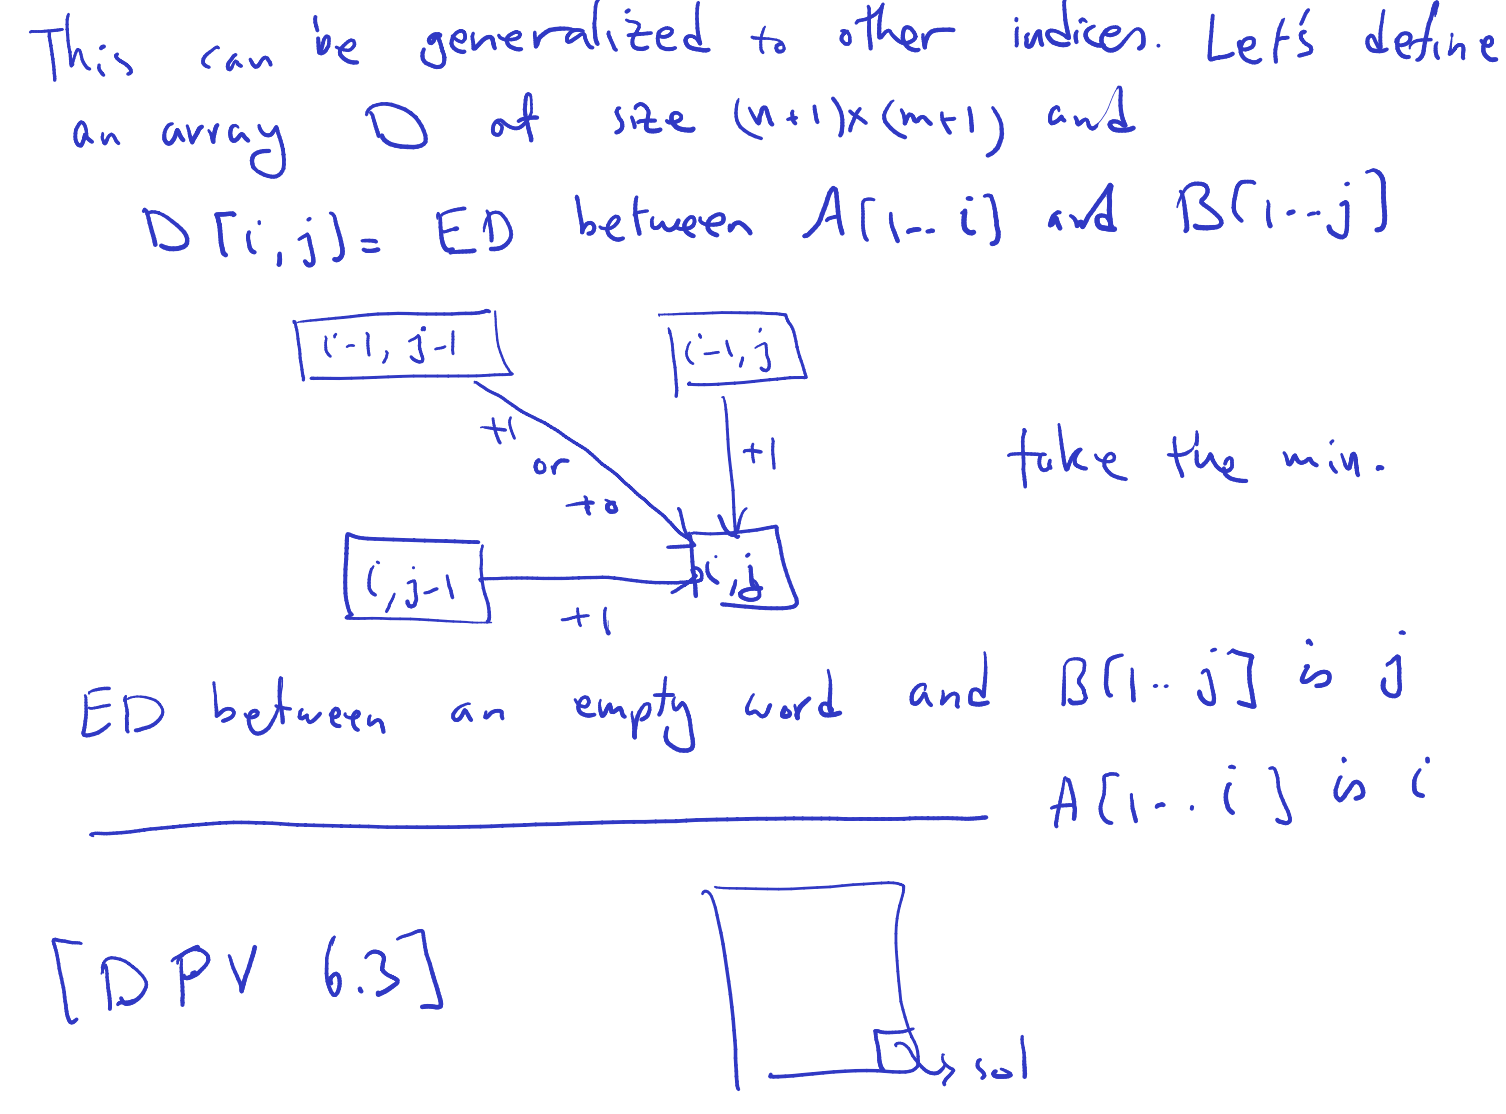 This can be generalized to other indices. Let's define
an array D of size (n+1)x(m+1) and
D[i,j]= ED between A[1..i] and B[1..j]
i-1, j-1
i-1, j
+1
or
+0
+1
take the min.
i, j-1
i, j
+1
ED between an empty word and B[1..j] is j
A[1..i] is i
[DPV 6.3]
sol